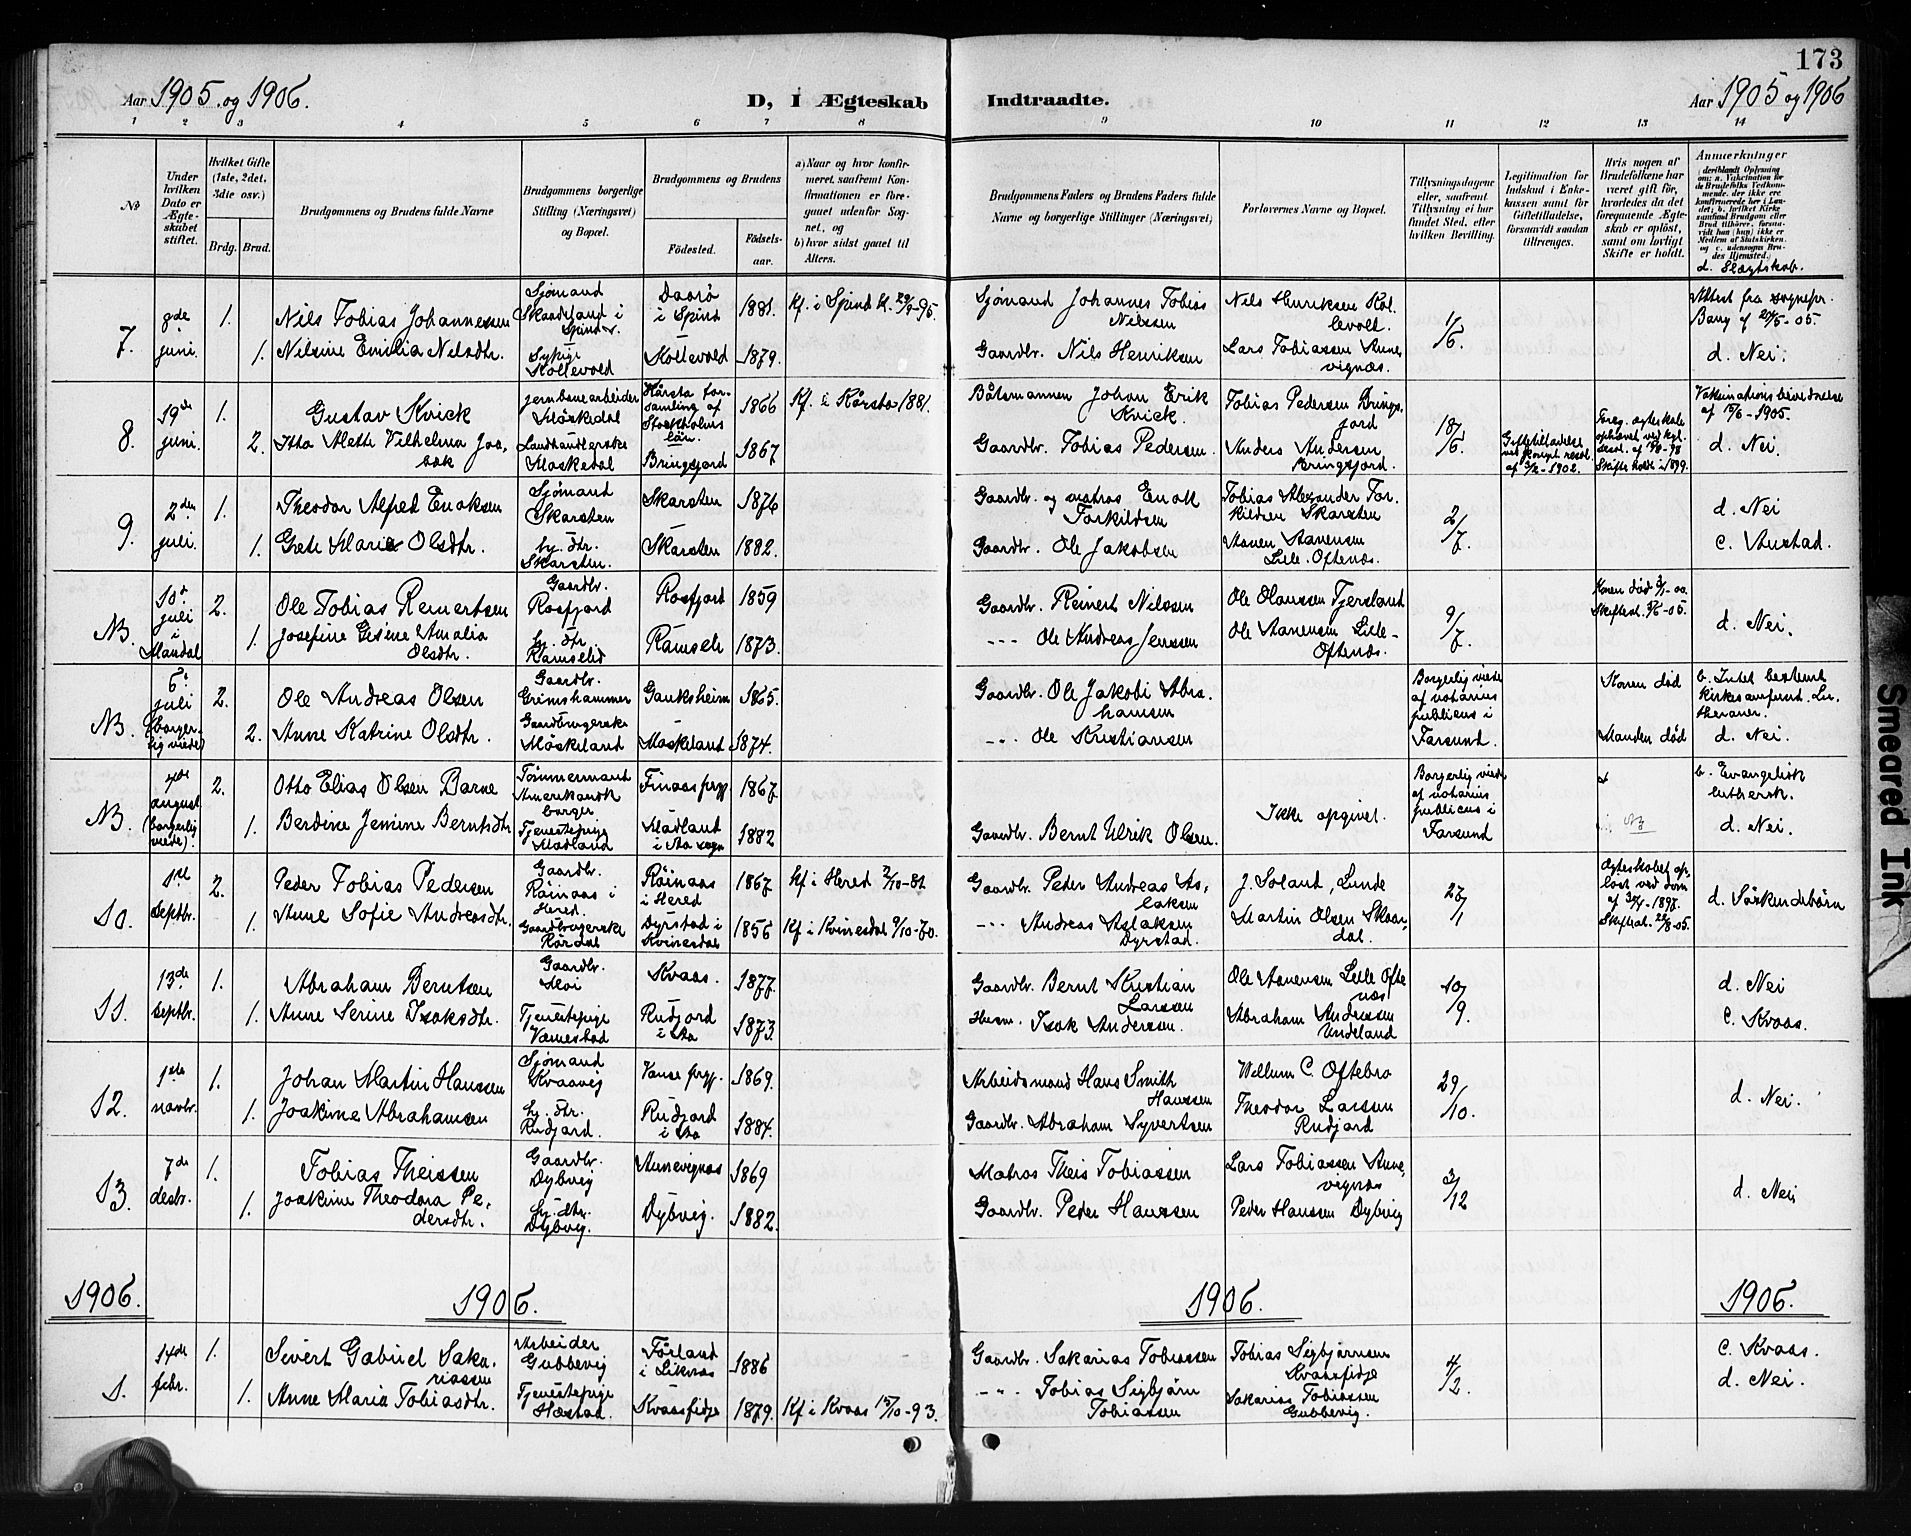 173
Aar 1905 og 1906.
D, I Ægteskab
Indtraadte.
Aar 1905 og 1906
1 2 3 4 5 6 7 8
9 10 11 12 13 14
No
Under hvilken Dato er Ægteskabet stiftet.
Hvilket Gifte (1ste, 2det, 3die osv.)
Brdg. Brud.
Brudgommens og Brudens fulde Navne
Brudgommens borgerlige Stilling (Næringsvei) og Bopæl.
Brudgommens og Brudens
Fødested.
Fødselsaar.
a) Naar og hvor konfirmeret, saafremt Konfirmationen er foregaaet udenfor Sognet, og
b) hvor sidst gaaet til Alters.
Brudgommens Faders og Brudens Faders fulde Navne og borgerlige Stillinger (Næringsvei)
Forlovernes Navne og Bopæl.
Tillysningsdagene eller, saafremt Tillysning ei har fundet Sted, efter hvilken Bevilling.
Legitimation for Indskud i Enkekassen samt for Giftetilladelse, forsaavidt saadan tiltrænges.
Hvis nogen af Brudefolkene har været gift før, hvorledes da det foregaaende Ægteskab er opløst, samt om lovligt Skifte er holdt.
Anmerkninger
d. Slægtskab.
7.
9de juni.
1.
Nils Tobias Johannessen
Sjømand Skaadeland i Spind s.
Daarø i Spind
1881.
Kf. i Spind k. 29/9-95.
Sjømand Johannes Tobias Nilssen
Nils Henriksen Kollevold.
1/6.
Attest fra sognepr. Bang af 24/5-05.
1. Nilsine Emilia Nilsdtr.
Sypige Kollevold
Kollevold
1879.
Gaardbr. Nils Henriksen
Lars Tobiassen Annevignæs.
d. Nei.
8.
19de juni.
1.
Gustav Kvick
Jernbanearbeider Møskedal
Kårsta forsamling af Stockholms län.
1866
Kf. i Kårsta 1881.
Båtsmannen Johan Erik Kvick.
Tobias Pedersen Bringsjord
18/6.
Giftetilladelse ved kongel. resol. af 3/2-1902.
Foreg. ægteskab ophævet ved kgl. resol. af 13/8-98 Skifte holdt i 1899.
Vaksinationsbevidnelse af 15/6-1905.
2. Itha Alethe Vilhelmina Jaabæk
Landhandlerske Møskedal
Bringsjord
1867
Gaardbr. Tobias Pedersen.
Anders Andersen Bringsjord.
d. Nei.
9.
2den juli.
1.
Theodor Alfred Enoksen
Sjømand Skarsten
Skarsten
1876
Gaardbr. og matros Enok Torkildsen
Tobias Alexander Torkildsen Skarsten
2/7.
d. Nei
1. Grete Marie Olsdtr.
hj. dtr. Skarsten.
Skarsten
1882.
Gaardbr. Ole Jakobsen
Aanen Aanensen Lille-Oftenæs.
c. Austad.
NB.
10de juli i Mandal
2.
Ole Tobias Reinertsen
Gaardbr. Rosfjord
Rosfjord
1859
Gaardbr. Reinert Nilssen
Ole Olaussen Tjersland
9/7.
Konen død 3/1-00. Skiftest. 3/6-05.
1. Josefine Gesine Amalia Olsdtr.
hj. dtr. Ramselid
Ramseli
1873.
--- Ole Andreas Jenssen
Ole Aanensen Lille-Oftenæs.
d. Nei.
NB.
6te juli (borgerlig viede)
2.
Ole Andreas Olsen
Gaardbr. Grimshammer
Gauksheim
1865.
Gaardbr. Ole Jakobi Abrahamsen
Borgerlig viede af notarius publicus i Farsund.
Konen død
b. Intet bestemt kirkesamfund. Lutheraner.
2. Anne Katrine Olsdtr.
Gaardbrugerske Møskeland
Møskeland
1874.
--- Ole Kristiansen
Manden død
d. Nei.
NB.
4de august (borgerlig viede).
2.
Otto Elias Olsen Barne
Tømmermand Amerikansk borger.
Finaas prgj.
1867.
Ikke opgivet.
Borgerlig viede af notarius publicus i Farsund
b. Evangelisk luthersk.
1. Berdine Jensine Berntsdtr.
Tjenestepige Madland
Madland i Aa sogn
1882
Gaardbr. Bernt Ulrik Olsen.
d. Nei.
10.
1ste septbr.
2.
Peder Tobias Pedersen
Gaardbr. Röinaas i Hered.
Röinaas i Hered
1867
Kf i Hered 2/10-81
Gaardbr. Peder Andreas Aslaksen
J. Soland, Lunde
27/1
Ægteskabet opløst ved dom af 30/4-1897. Skifteat. 22/8-05.
d. Söskendebörn
1. Anne Sofie Andreasdtr.
Gaardbrugerske Rørdal
Dyrstad i Kvinesdal
1856
Kf. i Kvinesdal 9/10-70.
--- Andreas Aslaksen Dyrstad.
Martin Olsen Skaardal.
11.
13de septbr.
1.
Abraham Berntsen
Gaardbr. Moi
Kvaas.
1877.
Gaardbr. Bernt Kristian Larssen
Ole Aanensen Lille Oftenæs
10/9.
d. Nei
1. Anne Serine Isaksdtr.
Tjenestepige Væmestad
Rudjord i Aa
1873.
Husm. Isak Anderssen.
Abraham Anderssen Undeland
C. Kvaas.
12.
1ste novbr.
1.
Johan Martin Hanssen
Sjømand Kvaavig
Vanse prgj.
1869.
Arbeidsmand Hans Smith Hanssen
Willum C. Oftebro
29/10.
1. Joakime Abrahamsen
hj. dtr. Rudjord.
Rudjord i Aa
1884.
Gaardbr. Abraham Syvertsen
Theodor Larssen Rudjord
d. Nei.
13.
7de desbr.
1.
Tobias Theissen
Gaardbr. Dybvig
Annevignæs
1869
Matros Theis Tobiassen
Lars Tobiassen Annevignæs
3/12
1. Joakime Theodora Pedersdtr.
hj. dtr. Dybvig.
Dybvig.
1882.
Gaardbr. Peder Hanssen
Peder Hanssen Dybvig
d. Nei
1906.
1906.
1906.
1906.
1.
14de febr.
1.
Sivert Gabriel Sakariassen
Arbeider Gubbevig
Førland i Liknæs
1886
Gaardbr. Sakarias Tobiassen
Tobias Sigbjørnsen Kvaasfidje
4/2.
C. Kvaas.
1. Anne Maria Tobiasdtr.
Tjenestepige Hæstad.
Kvaasfidje
1879.
Kf i Kvaas 15/10-93.
--- Tobias Sigbjørn Tobiassen
Sakarias Tobiassen Gubbevig.
d. Nei.
Smeared Ink